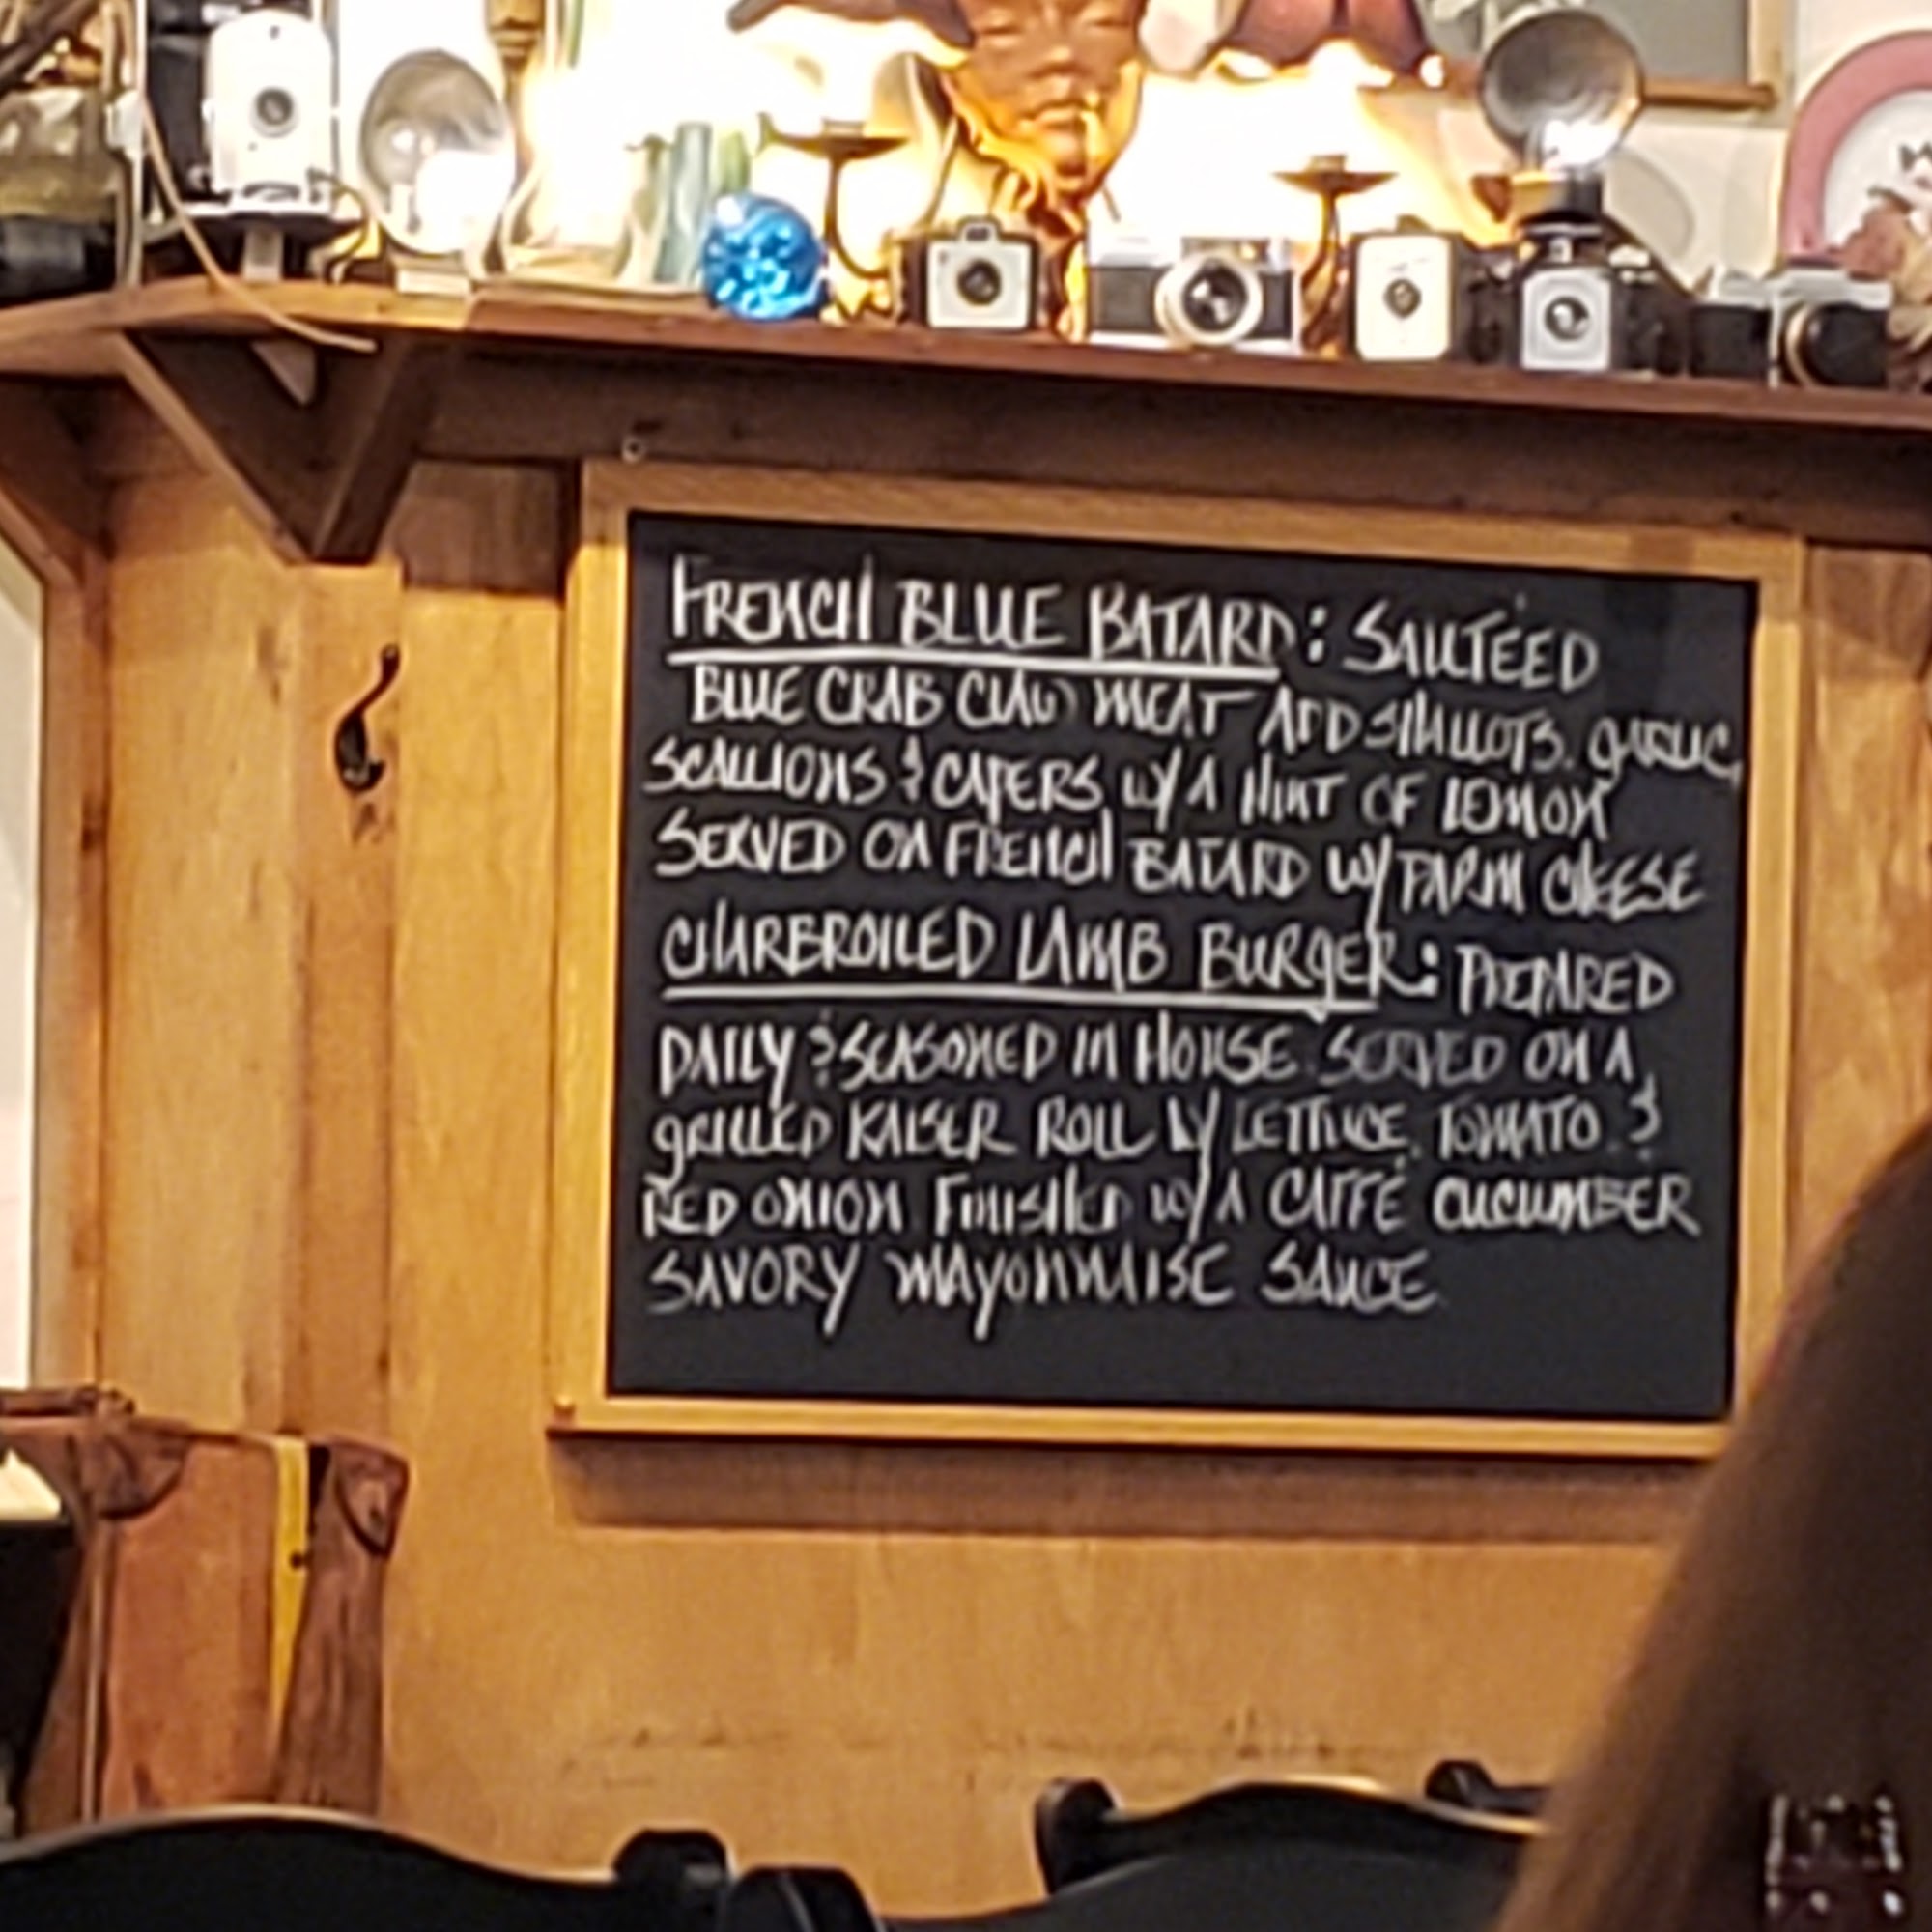 FRENCH BLUE BATARD: SAUTÉED
BLUE CRAB CLAW MEAT ADD SHALLOTS, GARLIC,
SCALLIONS & CAPERS W/ A HINT OF LEMON
SERVED ON FRENCH BATARD W/ PARM CHEESE
CHARBROILED LAMB BURGER: PREPARED
DAILY & SEASONED IN HOUSE. SERVED ON A
GRILLED KAISER ROLL W/ LETTUCE, TOMATO, &
RED ONION FINISHED W/ A CAFFÉ CUCUMBER
SAVORY MAYONNAISE SAUCE